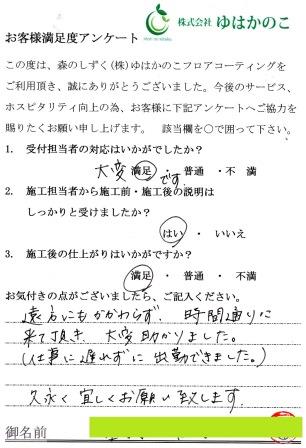 株式会社 ゆはかのこ
お客様満足度アンケート
この度は、森のしずく(株)ゆはかのこフロアコーティングを
ご利用頂き、誠にありがとうございました。今後のサービス、
ホスピタリティ向上の為、お客様に下記アンケートへご協力を
賜りたくお願い申し上げます。 該当欄を○で囲って下さい。
1. 受付担当者の対応はいかがでしたか?
大変 満足です ・ 普通 ・ 不 満
2. 施工担当者から施工前・施工後の説明は
しっかりと受けましたか?
はい ・ いいえ
3. 施工後の仕上がりはいかがですか?
満足 ・ 普通 ・ 不満
お気付きの点がございましたら、ご記入ください。
遠方にもかかわらず、時間通りに
来て頂き、大変助かりました。
(仕事に遅れずに出勤できました。)
久永く宜しくお願い致します
御名前